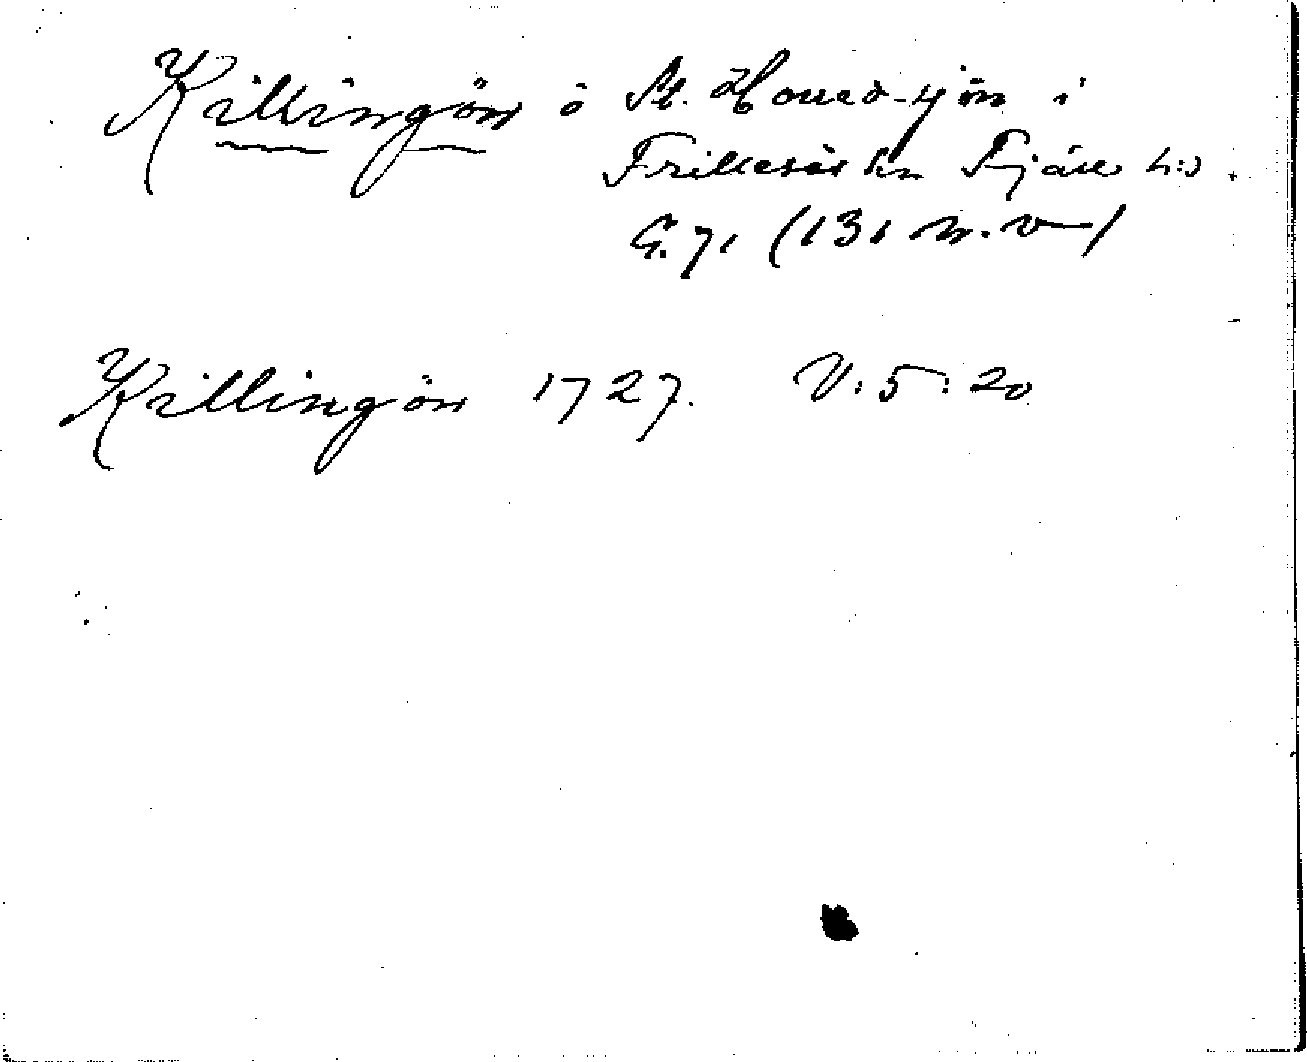 Killingön ö St. Hornedsjön i
Frillesås sn Fjäre hd.
G.71 (131 n.v.)
Killingön 1727. V:5:20